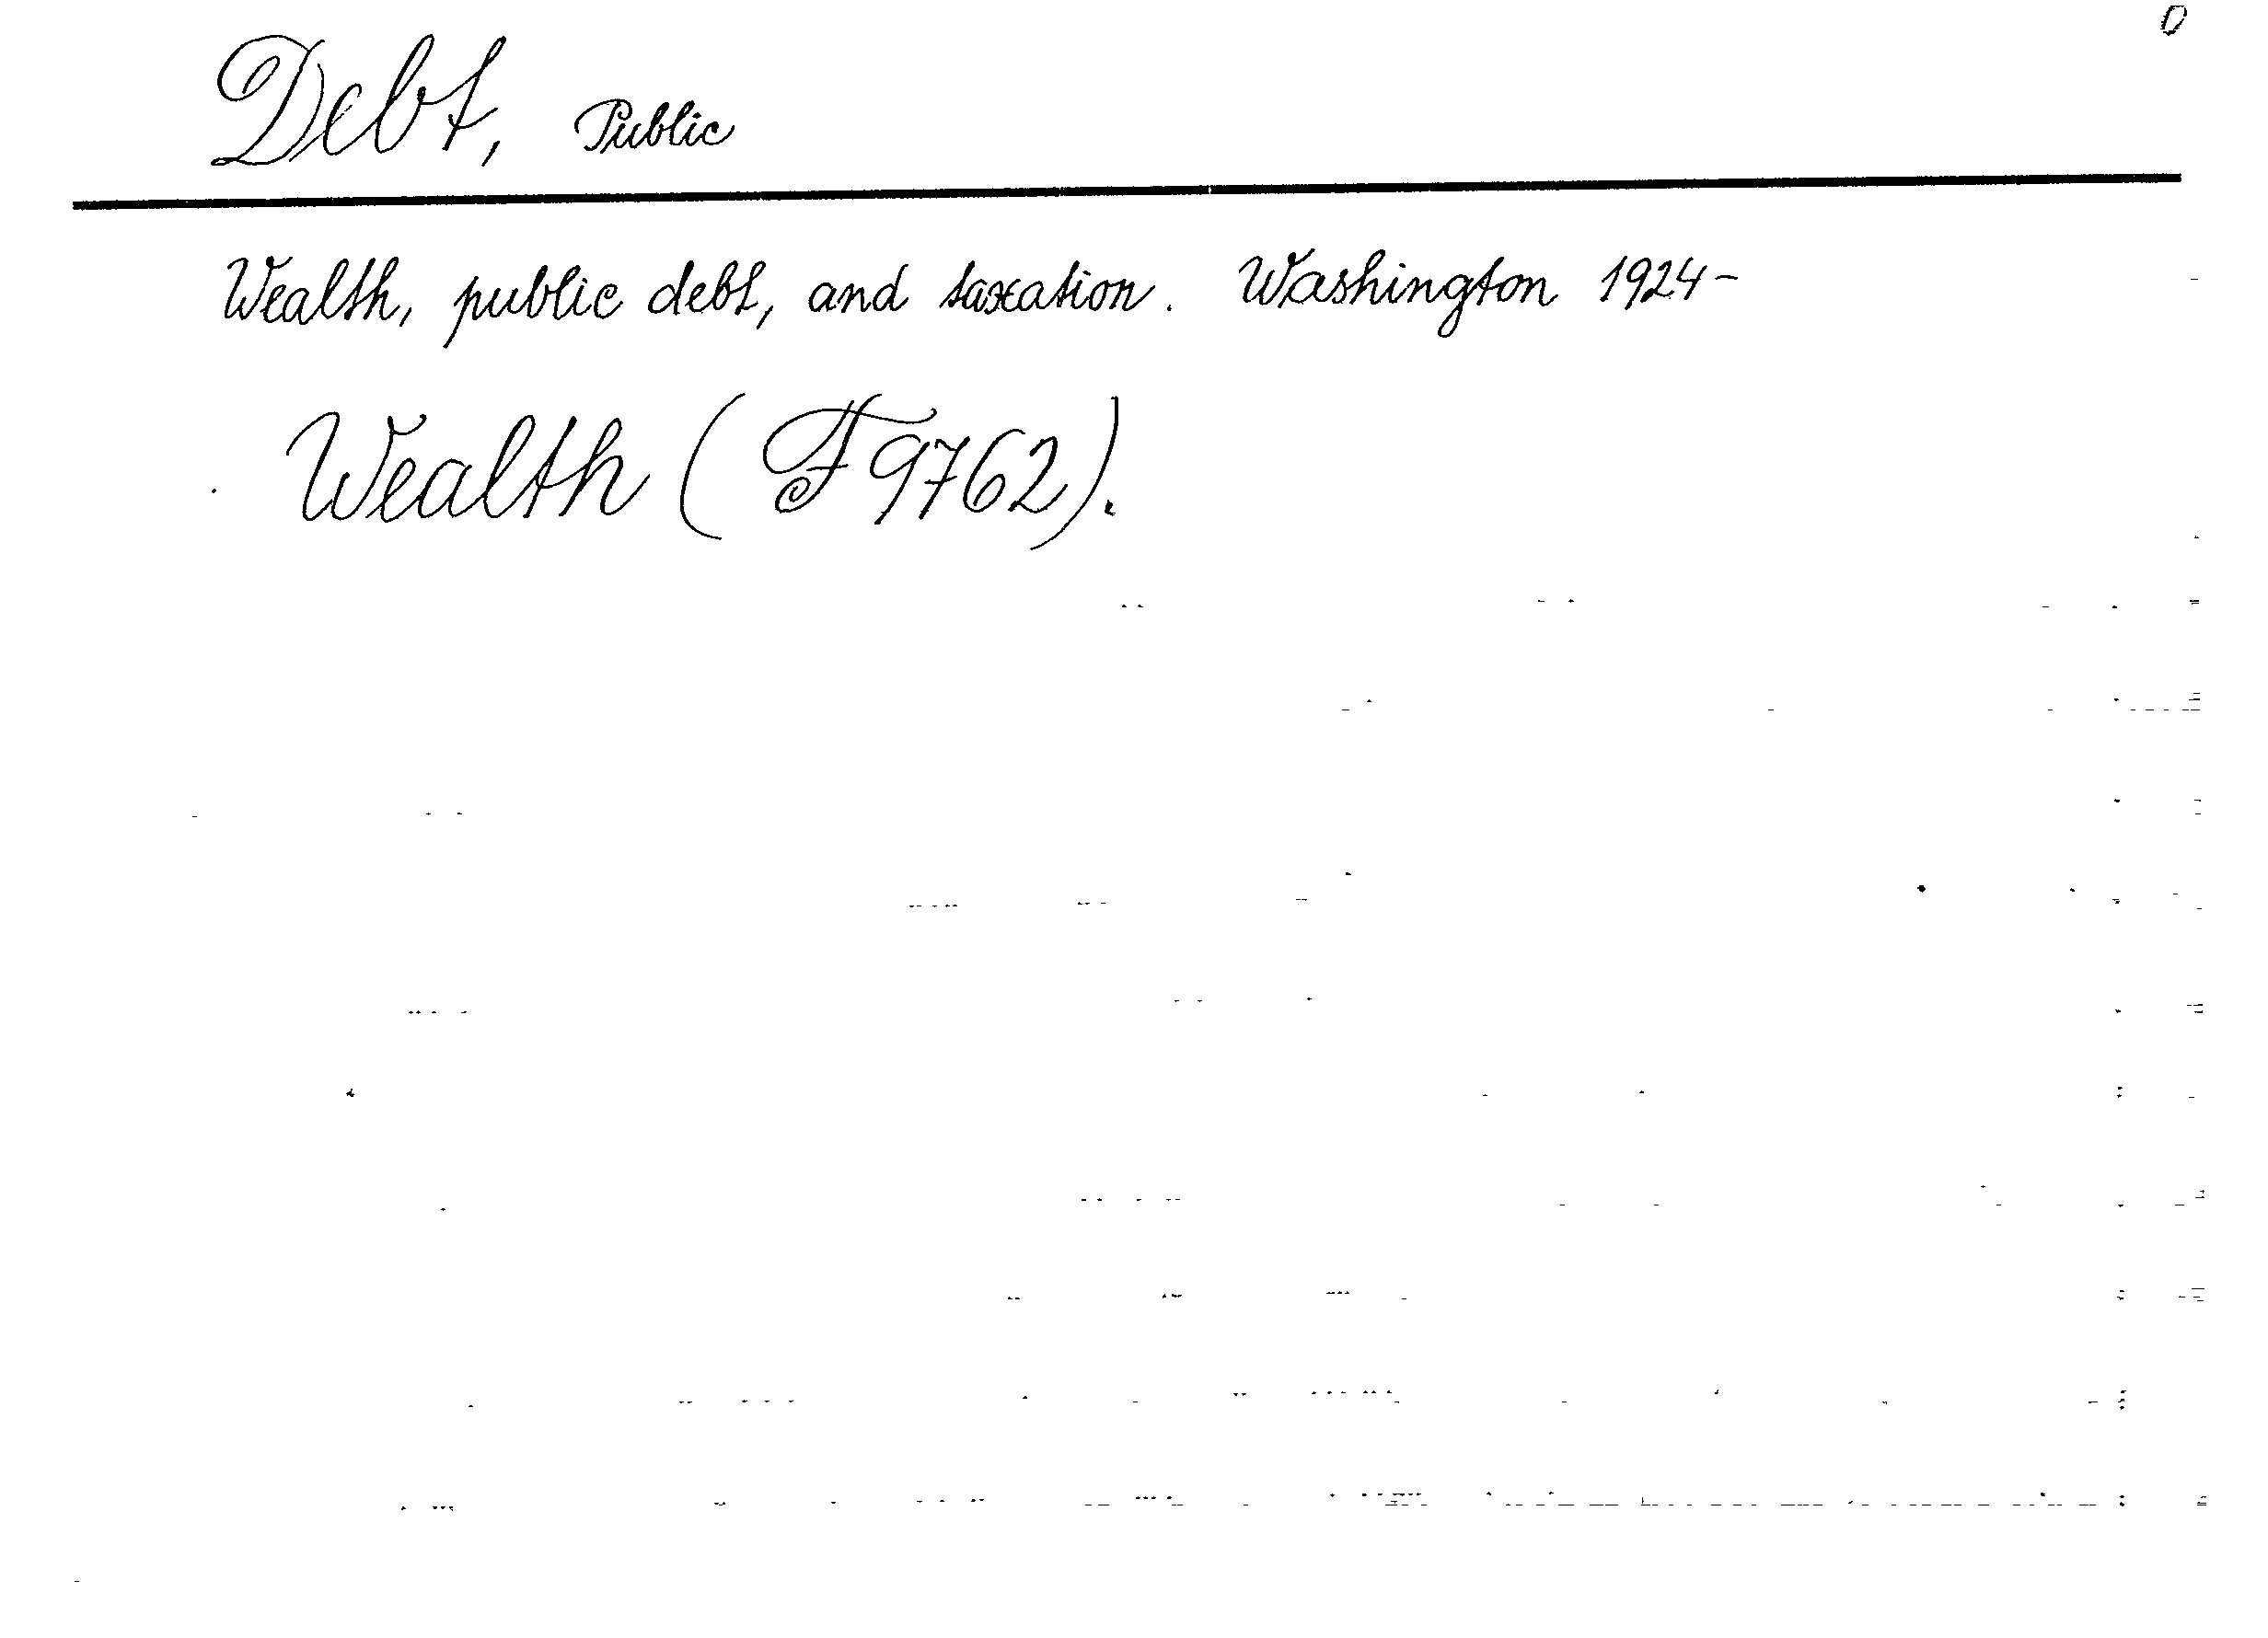 0
Debt, Public
Wealth, public debt, and taxation. Washington 1924-
Wealth (F9762).